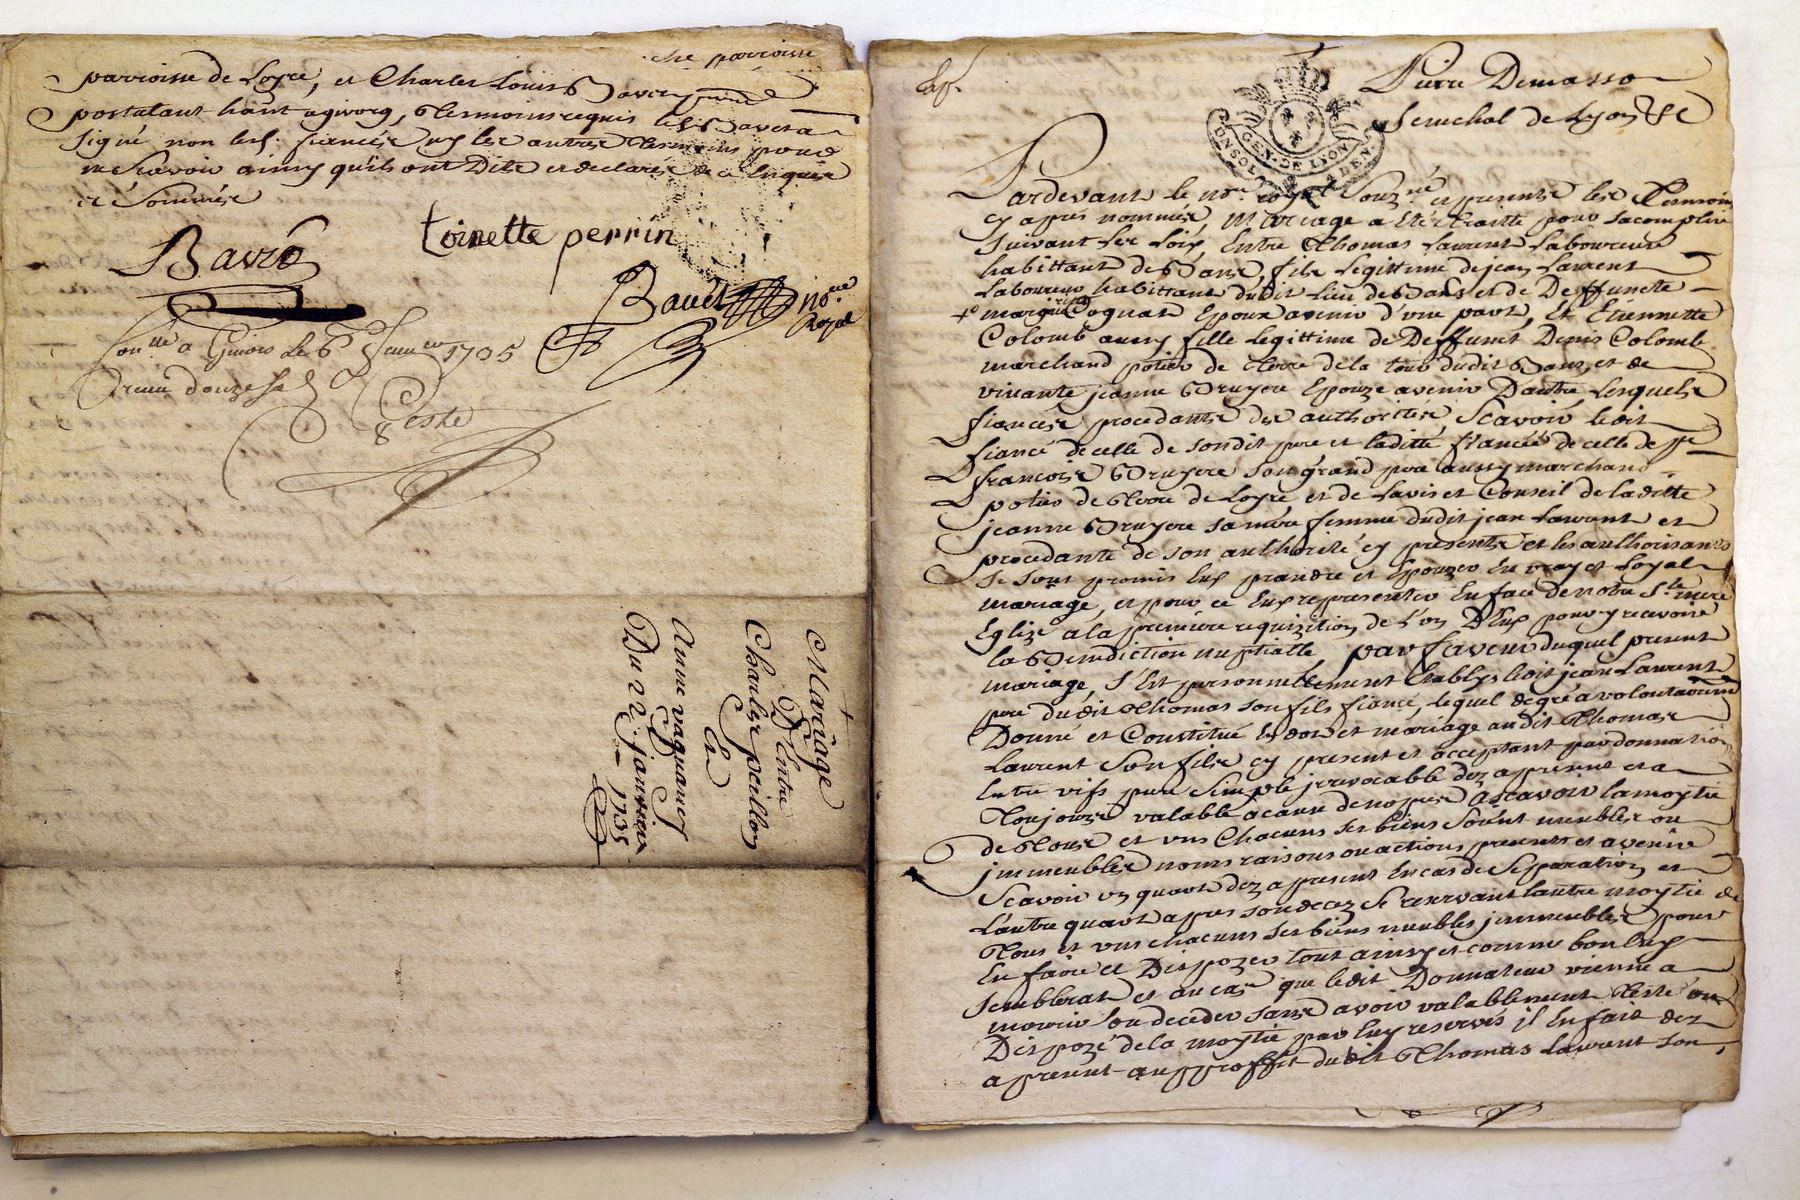 che parroisse
parroisse de Loyre, et Charles Louis Bavet
postulant hant a givorg, tesmoins requis led. Bavet a
signé non lesd. fiancés ny les autres tesmoins pour
ne scavoir ainsy qu'ils ont dit et declarés de ce enquis
et sommés
Bavet
toinette perrin
Bavet no.re
Royal
Con.lle a Givors le 6
Receu douze s.
Mariage
D'Entre
Charles peillon
et
Anne vaganey
Du 22 janvier
1735
Pierre Demasso
Senechal de Lyon &c
GEN. DE LYON
Pardevant le no.re royal souz.né et presents les tesmoins
cy apres nommés, mariage a eté traitté pour sacomplire
suivant les loix, Entre Thomas Laurent Laboureur
habittant de Bans, fils legittime de jean Laurent
Laboureur habittant dudit lieu de Bans et de Deffuncte
margueritte Coignat Epoux avenir d'une part, Et Etiennette
Colomb aussy fille legittime de Deffunct Denis Colomb
marchand potier de terre de la tour dudit Bans, et de
vivante jeanne Bruyere Epouze avenir D'autre Lesquels
fiancés procedants des authorités, Scavoir ledit
fiancé de celle de sondit pere et laditte fiancée de celle de s.r
françois Bruyere son grand pere aussy marchand
potier de terre de Loyre et de lavis et Conseil de laditte
jeanne Bruyere sa mere femme dudit jean Laurent et
procedante de son authorité cy presents et les authorisants
se sont promis Eux prandre et Epouzer En vray et Loyal
mariage, et pour ce Eux representer En face de notre S.te mere
Eglize a la premiere requizition de l'un D'Eux pour y recevoir
la Benediction nuptialle par faveur duquel present
mariage, s'Est personnellement Etablys ledit jean Laurent
pere dudit Thomas son fils fiancé, lequel de gré a volontairem.t
Donné et Constitué En dot et mariage audit Thomas
Laurent Son fils cy present et acceptant par donnation
Entre vifs pure simple jrrevocable dez apresent et a
Toujours valable a cause de nopces Ascavoir la moytié
de Tous et uns chacuns ses biens soient meubles ou
jmmeubles noms raisons ou actions presents et avenir
Scavoir un quart dez apresent En cas de Separation et
L'autre quart apres son decez se reservant lautre moytié de
Tous et uns chacuns ses biens meubles jmmeubles pour
En faire et Dispozer tout ainsy et comme bon luy
semblerat et au cas que ledit Donnateur vienne a
mourir ou deceder sans avoir valablement Testé ou
Dispozé de la moytié par luy reservés jl En fait dez
apresent au proffit dudit Thomas Laurent son